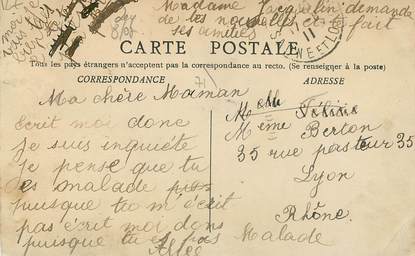 Madame Jacquelin demande
de tes nouvelles et te fait
ses amitiés
CARTE POSTALE
Tous les pays étrangers n'acceptent pas la correspondance au recto. (Se renseigner à la poste)
CORRESPONDANCE
ADRESSE
Ma chère Maman
Ecrit moi donc
je suis inquiéte
je pense que tu
es malade
puisque tu m'écrit
pas écrit moi dons
puisque tu es pas
Malade
Melle
Mème Berton
35 rue pasteur 35
Lyon
Rhône.